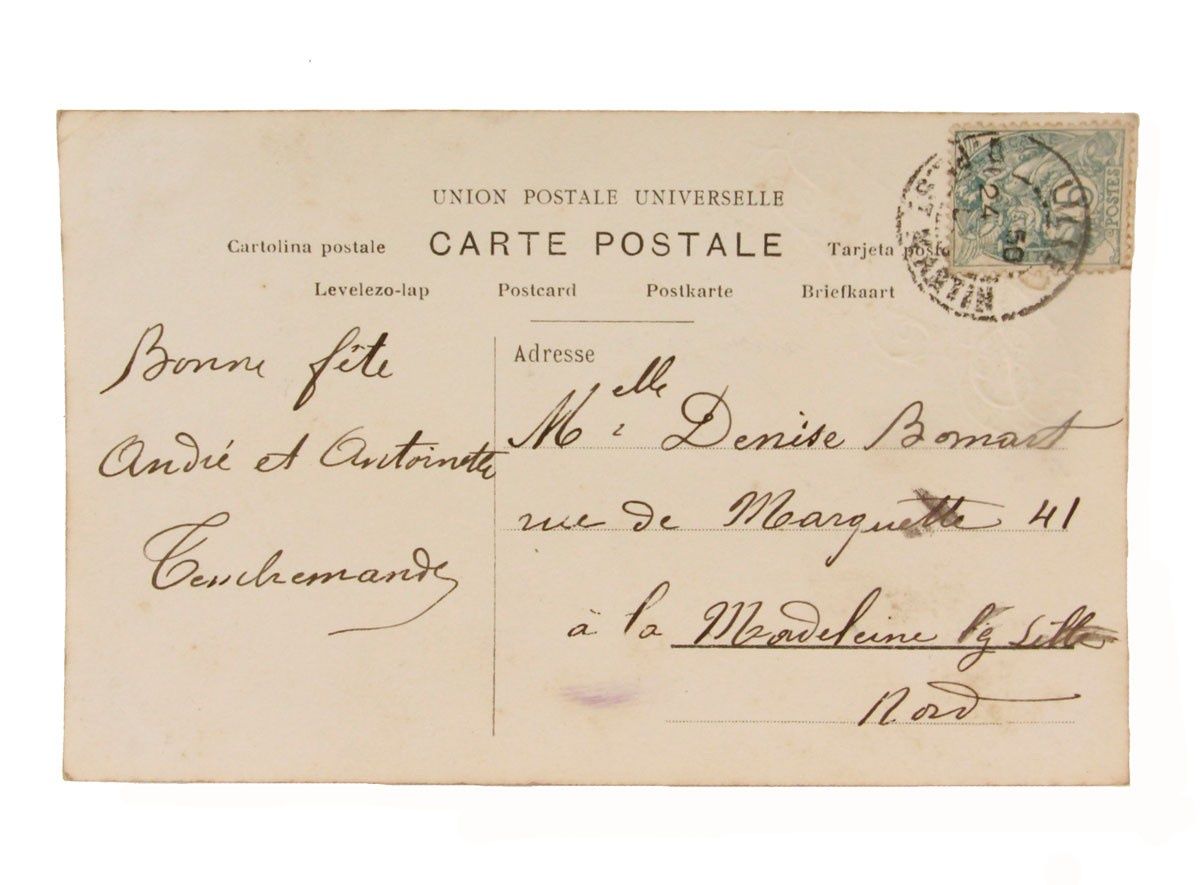 UNION POSTALE UNIVERSELLE
Cartolina postale CARTE POSTALE Tarjeta posta
Levelezo-lap Postcard Postkarte Briefkaart
POSTES
24 50
ST MARTIN
Bonne fête
André et Antoinette
Adresse
Melle Denise Bomart
rue de Marquette 41
à la Madeleine lg Lille
Nord